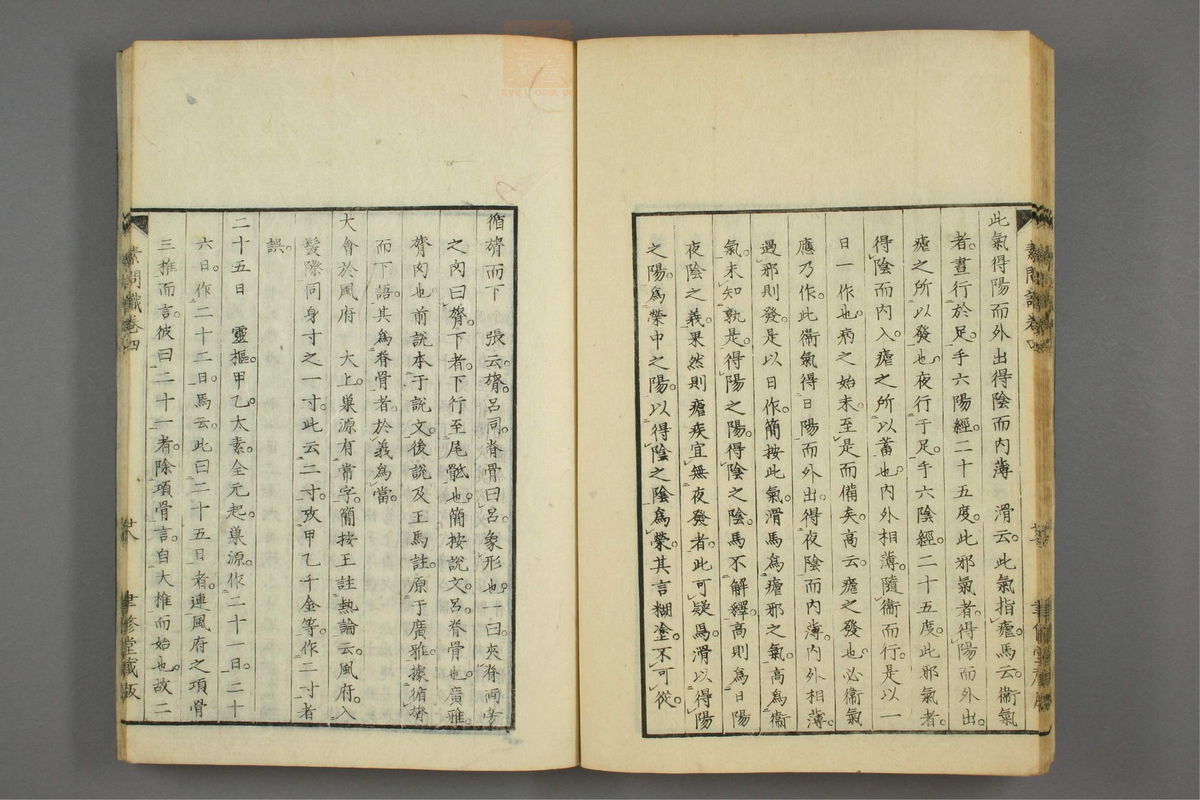 此氣得陽而外出得陰而內薄　滑云。此氣指瘧。馬云。衞氣
者。晝行於足。手六陽經。二十五度。此邪氣者。得陽而外出。
瘧之所以發也。夜行于足。手六陰經。二十五度。此邪氣者。
得陰而內入。瘧之所以蓄也。內外相薄。隨衞而行。是以一
日一作也。病之始末。至是而備矣。高云。瘧之發也。必衞氣
應乃作。此衞氣得日陽而外出。得夜陰而內薄。內外相薄。
遇邪則發。是以日作。簡按此氣。滑馬為瘧邪之氣。高為衞
氣。未知孰是。得陽之陽。得陰之陰。馬不解繹。高則為日陽
夜陰之義。果然則瘧疾宜無夜發者。此可疑焉。滑以得陽
之陽。為榮中之陽。以得陰之陰為榮。其言糊塗。不可從。
循膂而下　張云。膂。呂同。脊骨曰呂。象形也。一曰夾脊兩旁
之內曰膂。下者。下行至尾骶也。簡按說文。呂。脊骨也。廣雅。
膂肉也。前說本于說文。後說及王馬註。原于廣雅。據循膂
而下語。其為脊骨者。於義為當。
大會於風府　大上。巢源有常字。簡按王註熱論云。風府。入
髮際同身寸之一寸。此云二寸。攷甲乙千金等。作二寸者
誤。
二十五日　靈樞。甲乙。太素。全元起。巢源。作二十一日。二十
六日。作二十二日。馬云。此曰二十五日者。連風府之項骨
三椎而言。彼曰二十一者。除項骨言。自大椎而始也。故二
素問識卷四
廿八
聿修堂藏版